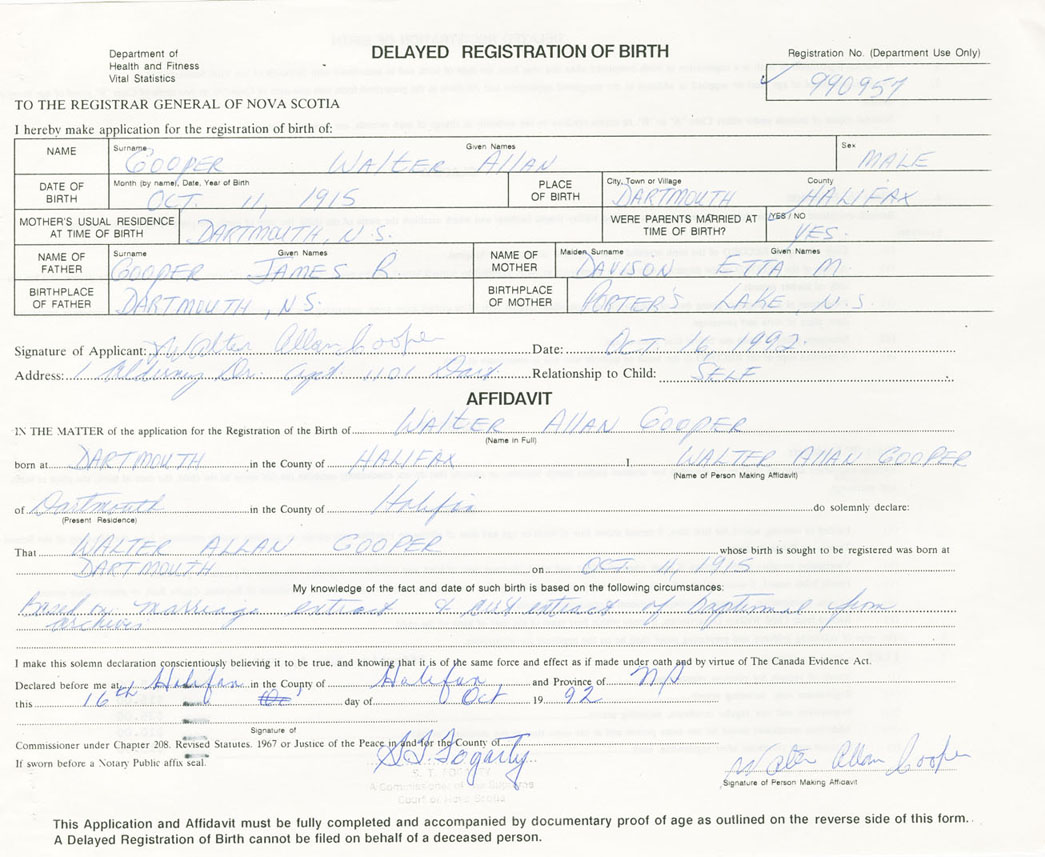 Department of
Health and Fitness
Vital Statistics
DELAYED REGISTRATION OF BIRTH
Registration No. (Department Use Only)
990957
TO THE REGISTRAR GENERAL OF NOVA SCOTIA
I hereby make application for the registration of birth of:
NAME Surname Given Names Sex
COOPER WALTER ALLAN MALE
DATE OF BIRTH Month (by name), Date, Year of Birth PLACE OF BIRTH City, Town or Village County
OCT. 11, 1915 DARTMOUTH HALIFAX
MOTHER'S USUAL RESIDENCE AT TIME OF BIRTH DARTMOUTH, N.S. WERE PARENTS MARRIED AT TIME OF BIRTH? YES / NO YES.
NAME OF FATHER Surname Given Names NAME OF MOTHER Maiden Surname Given Names
COOPER JAMES R. DAVISON ETTA M.
BIRTHPLACE OF FATHER DARTMOUTH, N.S. BIRTHPLACE OF MOTHER PORTER'S LAKE, N.S.
Signature of Applicant: Walter Allan Cooper Date: OCT. 16, 1992
Address: 1 Alderney Dr. apt 1101 Dart Relationship to Child: SELF
AFFIDAVIT
IN THE MATTER of the application for the Registration of the Birth of WALTER ALLAN COOPER
(Name in Full)
born at DARTMOUTH in the County of HALIFAX I WALTER ALLAN COOPER
(Name of Person Making Affidavit)
of Dartmouth in the County of Halifax do solemnly declare:
(Present Residence)
That WALTER ALLAN COOPER whose birth is sought to be registered was born at
DARTMOUTH on OCT. 11, 1915
My knowledge of the fact and date of such birth is based on the following circumstances:
based on marriage extract & extract of baptismal from
archives
I make this solemn declaration conscientiously believing it to be true, and knowing that it is of the same force and effect as if made under oath and by virtue of The Canada Evidence Act.
Declared before me at Halifax in the County of Halifax and Province of NS
this 16th day of Oct 19 92
Signature of
Commissioner under Chapter 208. Revised Statutes. 1967 or Justice of the Peace in and for the County of
S.T. Fogarty
If sworn before a Notary Public affix seal.
Walter Allan Cooper
Signature of Person Making Affidavit
S. T. FOGARTY
A Commissioner of the Supreme
Court of Nova Scotia
This Application and Affidavit must be fully completed and accompanied by documentary proof of age as outlined on the reverse side of this form.
A Delayed Registration of Birth cannot be filed on behalf of a deceased person.